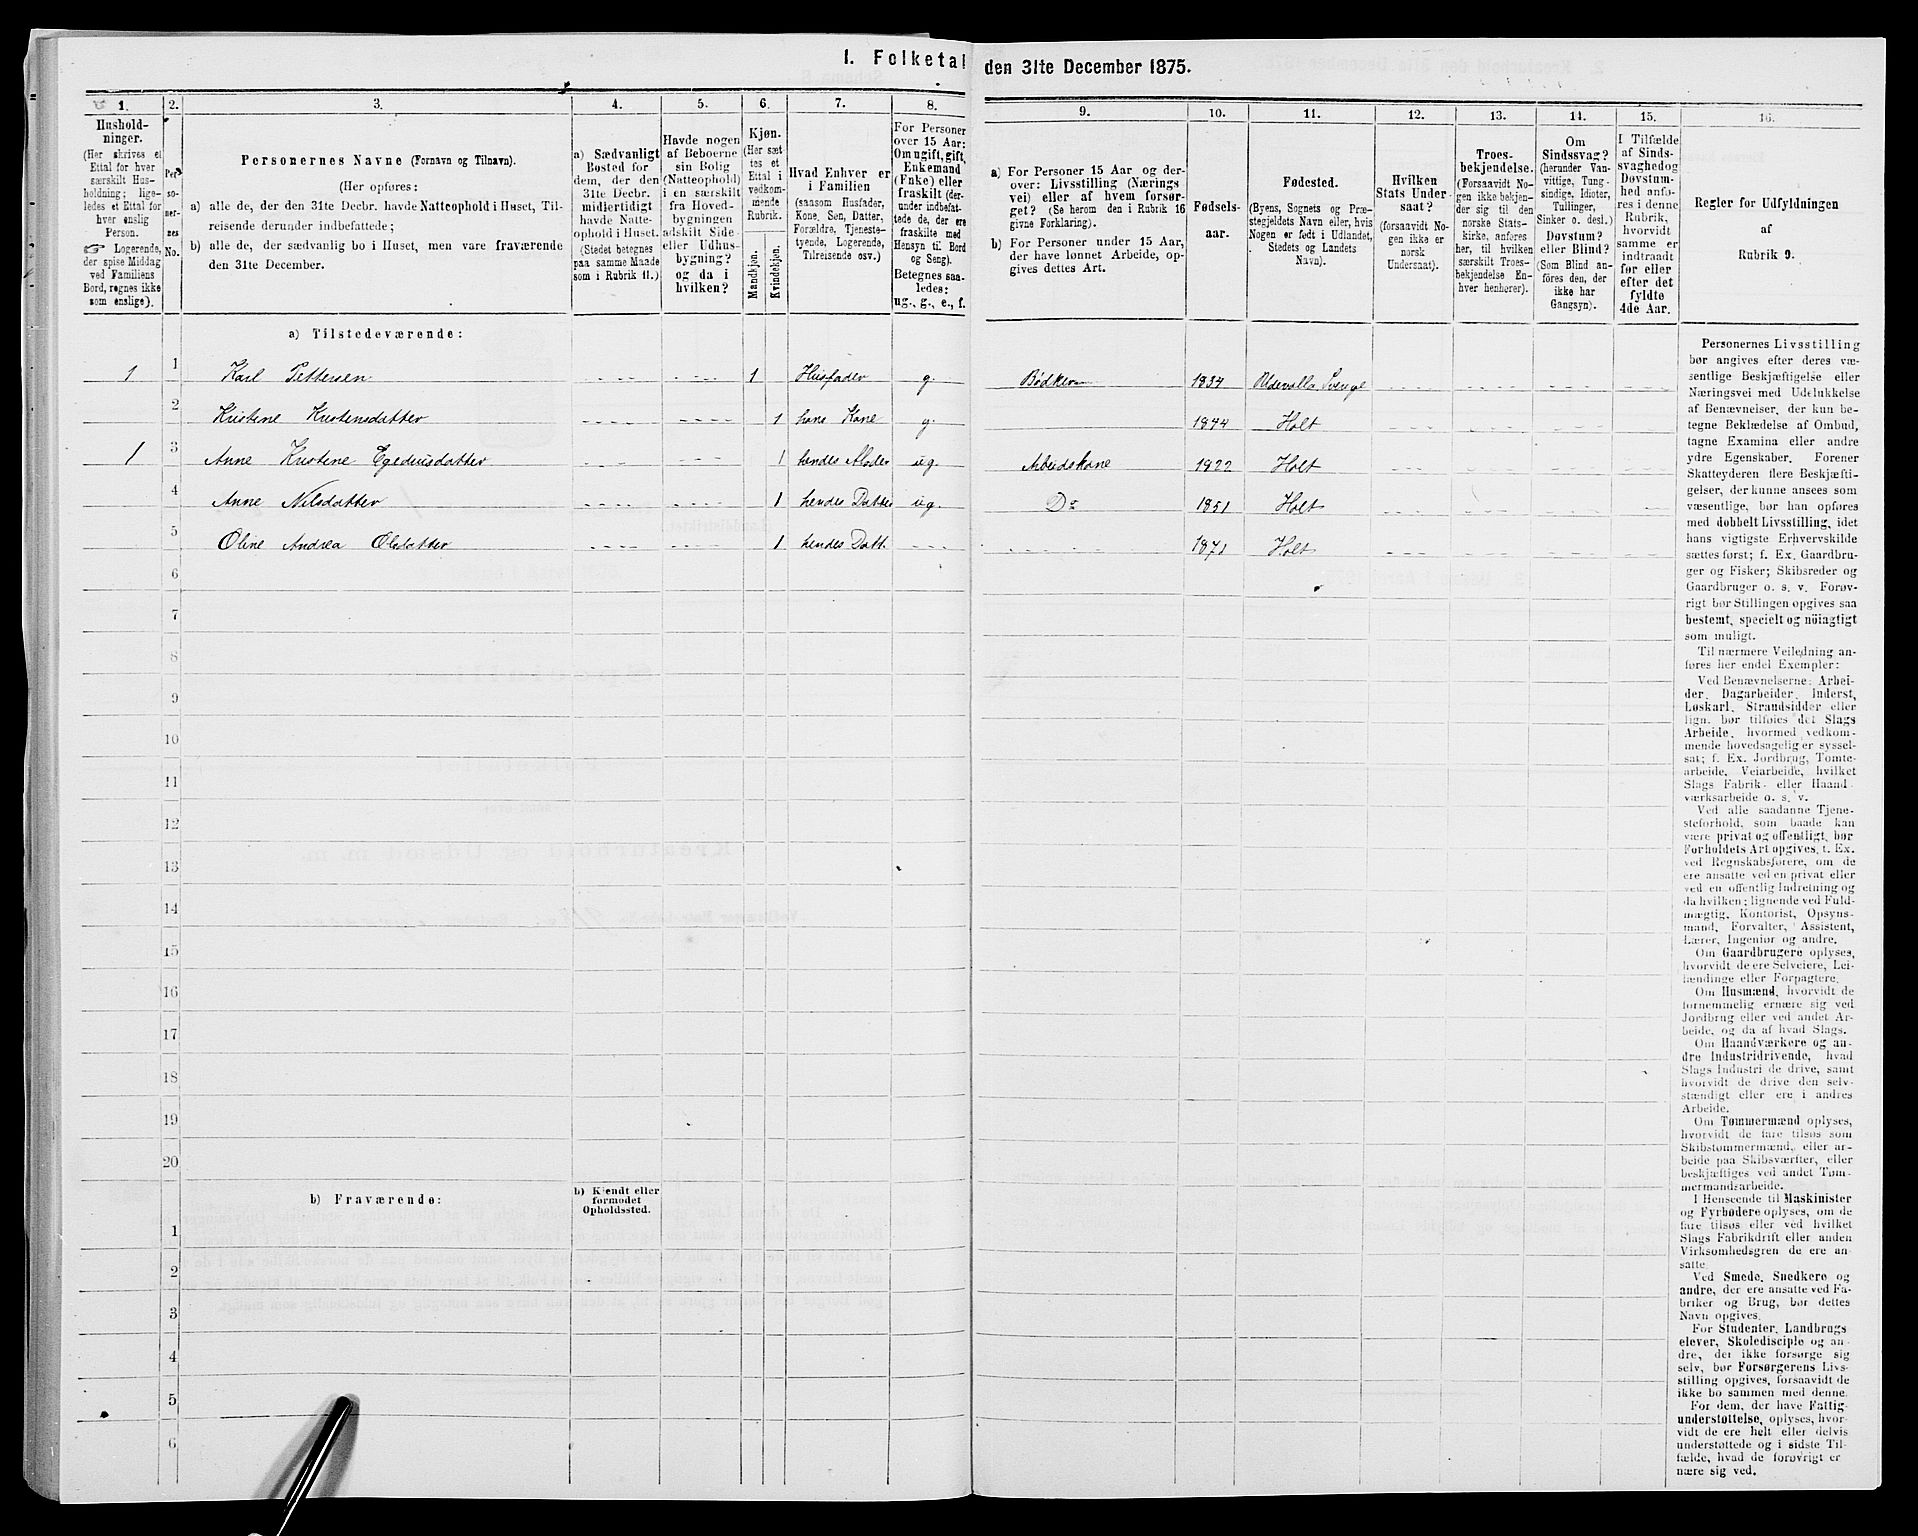 1. Folketal den 31te December 1875.
1.
Hushold-
ninger.
(Her skrives et
Ettal for hver
særskilt Hus-
holdning; lige-
ledes et Ettal for
hver enslig
Person.
☞ Logerende,
der spise Middag
ved Familiens
Bord, regnes ikke
som enslige).
2.
Per
so-
ner-
nes
No.
3.
Personernes Navne (Fornavn og Tilnavn).
(Her opføres:
a) alle de, der den 31te Decbr. havde Natteophold i Huset, Til-
reisende derunder indbefattede;
b) alle de, der sædvanlig bo i Huset, men vare fraværende
den 31te December.
4.
a) Sædvanligt
Bosted for
dem, der den
31te Decbr.
midlertidigt
havde Natte-
ophold i Huset.
(Stedet betegnes
paa samme Maade
som i Rubrik 11.)
5.
Havde nogen
af Beboerne
sin Bolig
(Natteophold)
i en særskilt
fra Hoved-
bygningen
adskilt Side-
eller Udhus-
bygning?
og da i
hvilken?
6.
Kjøn.
(Her sæt
tes et
Ettal i
vedkom-
mende
Rubrik.
Mandkjøn.
Kvindekjøn.
7.
Hvad Enhver er
i Familien
(saasom Husfader,
Kone, Søn, Datter,
Forældre, Tjeneste-
tyende, Logerende,
Tilreisende osv.)
8.
For Personer
over 15 Aar:
Om ugift, gift,
Enkemand
(Enke) eller
fraskilt (der-
under indbefat-
tede de, der ere
fraskilte med
Hensyn til Bord
og Seng).
Betegnes saa-
ledes:
ug., g., e., f.
9.
a) For Personer 15 Aar og der-
over: Livsstilling (Nærings
vei) eller af hvem forsør-
get? (Se herom den i Rubrik 16
givne Forklaring).
b) For Personer under 15 Aar,
der have lønnet Arbeide, op-
gives dettes Art.
10.
Fødsels-
aar.
11.
Fødested.
(Byens, Sognets og Præ-
stegjeldets Navn eller, hvis
Nogen er født i Udlandet,
Stedets og Landets
Navn).
12.
Hvilken
Stats Under-
saat?
(forsaavidt No-
gen ikke er
norsk
Undersaat).
13.
Troes-
bekjendelse.
(Forsaavidt No-
gen ikke bekjen-
der sig til den
norske Stats-
kirke, anføres
her, til hvilken
særskilt Troes-
bekjendelse En-
hver henhører).
14.
Om
Sindssvag?
(herunder Van-
vittige, Tung-
sindige, Idioter,
Tullinger,
Sinker o. desl.)
Døvstum?
eller Blind?
(Som Blind an-
føres den, der
ikke har
Gangsyn).
15.
I Tilfælde
af Sinds-
svaghed og
Døvstum-
hed anfø-
res i denne
Rubrik,
hvorvidt
samme er
indtraadt
før eller
efter det
fyldte
4de Aar.
16.
Regler for Udfyldningen
af
Rubrik 9.
a) Tilstedeværende:
1 1 Karl Pettersen 1 Husfader g. Bødker 1834 Udevalla Sverige
2 Kristene Kristensdatter 1 hans Kone g. 1844 Holt
1 3 Anne Kristene Egediusdatter 1 hendes Moder ug. Arbeidskone 1822 Holt
4 Anne Nilsdatter 1 hendes Datter ug. Do 1851 Holt
5 Oline Andrea Olsdatter 1 hendes Datt. 1871 Holt
6
7
8
9
10
11
12
13
14
15
16
17
18
19
20
b) Fraværende:
b) Kjendt eller
formodet
Opholdssted.
1
2
3
4
5
6
Personernes Livsstilling
bør angives efter deres væ-
sentlige Beskjæftigelse eller
Næringsvei med Udelukkelse
af Benævnelser, der kun be-
tegne Beklædelse af Ombud,
tagne Examina eller andre
ydre Egenskaber. Forener
Skatteyderen flere Beskjæfti-
gelser, der kunne ansees som
væsentlige, bør han opføres
med dobbelt Livsstilling, idet
hans vigtigste Erhvervskilde
sættes først; f. Ex. Gaardbru-
ger og Fisker; Skibsreder og
Gaardbruger o. s. v. Forøv-
rigt bør Stillingen opgives saa
bestemt, specielt og nøiagtigt
som muligt.
Til nærmere Veiledning an-
føres her endel Exempler:
Ved Benævnelserne: Arbei-
der, Dagarbeider, Inderst,
Løskarl, Strandsidder eller
lign. bør tilføies det Slags
Arbeide, hvormed vedkom-
mende hovedsagelig er syssel-
sat; f. Ex. Jordbrug, Tomte-
arbeide, Veiarbeide, hvilket
Slags Fabrik- eller Haand-
værksarbeide o. s. v.
Ved alle saadanne Tjene-
steforhold, som baade kan
være privat og offentligt, bør
Forholdets Art opgives, f. Ex.
ved Regnskabsførere, om de
ere ansatte ved en privat eller
ved en offentlig Indretning og
da hvilken; lignende ved Fuld-
mægtig, Kontorist, Opsyns-
mand, Forvalter, Assistent,
Lærer, Ingeniør og andre.
Om Gaardbrugere oplyses,
hvorvidt de ere Selveiere, Lei-
lændinge eller Forpagtere.
Om Husmænd, hvorvidt de
fornemmelig ernære sig ved
Jordbrug eller ved andet Ar-
beide, og da af hvad Slags.
Om Haandværkere og an-
dre Industridrivende, hvad
Slags Industri de drive, samt
hvorvidt de drive den selv-
stændigt eller ere i andres
Arbeide.
Om Tømmermænd oplyses,
hvorvidt de fare tilsøs som
Skibstømmermænd, eller ar-
beide paa Skibsværfter, eller
beskjæftiges ved andet Tøm-
mermandsarbeide.
I Henseende til Maskinister
og Fyrbødere oplyses, om de
fare tilsøs eller ved hvilket
Slags Fabrikdrift eller anden
Virksomhedsgren de ere an-
satte.
Ved Smede, Snedkere og
andre, der ere ansatte ved Fa-
briker og Brug, bør dettes
Navn opgives.
For Studenter, Landbrugs
elever, Skoledisciple og an-
dre, der ikke forsørge sig
selv, bør Forsørgerens Livs-
stilling opgives, forsaavidt de
ikke bo sammen med denne.
For dem, der have Fattig
understøttelse, oplyses, hvor-
vidt de ere helt eller delvis
understøttede og i sidste Til-
fælde, hvad de forøvrigt er
nære sig ved.